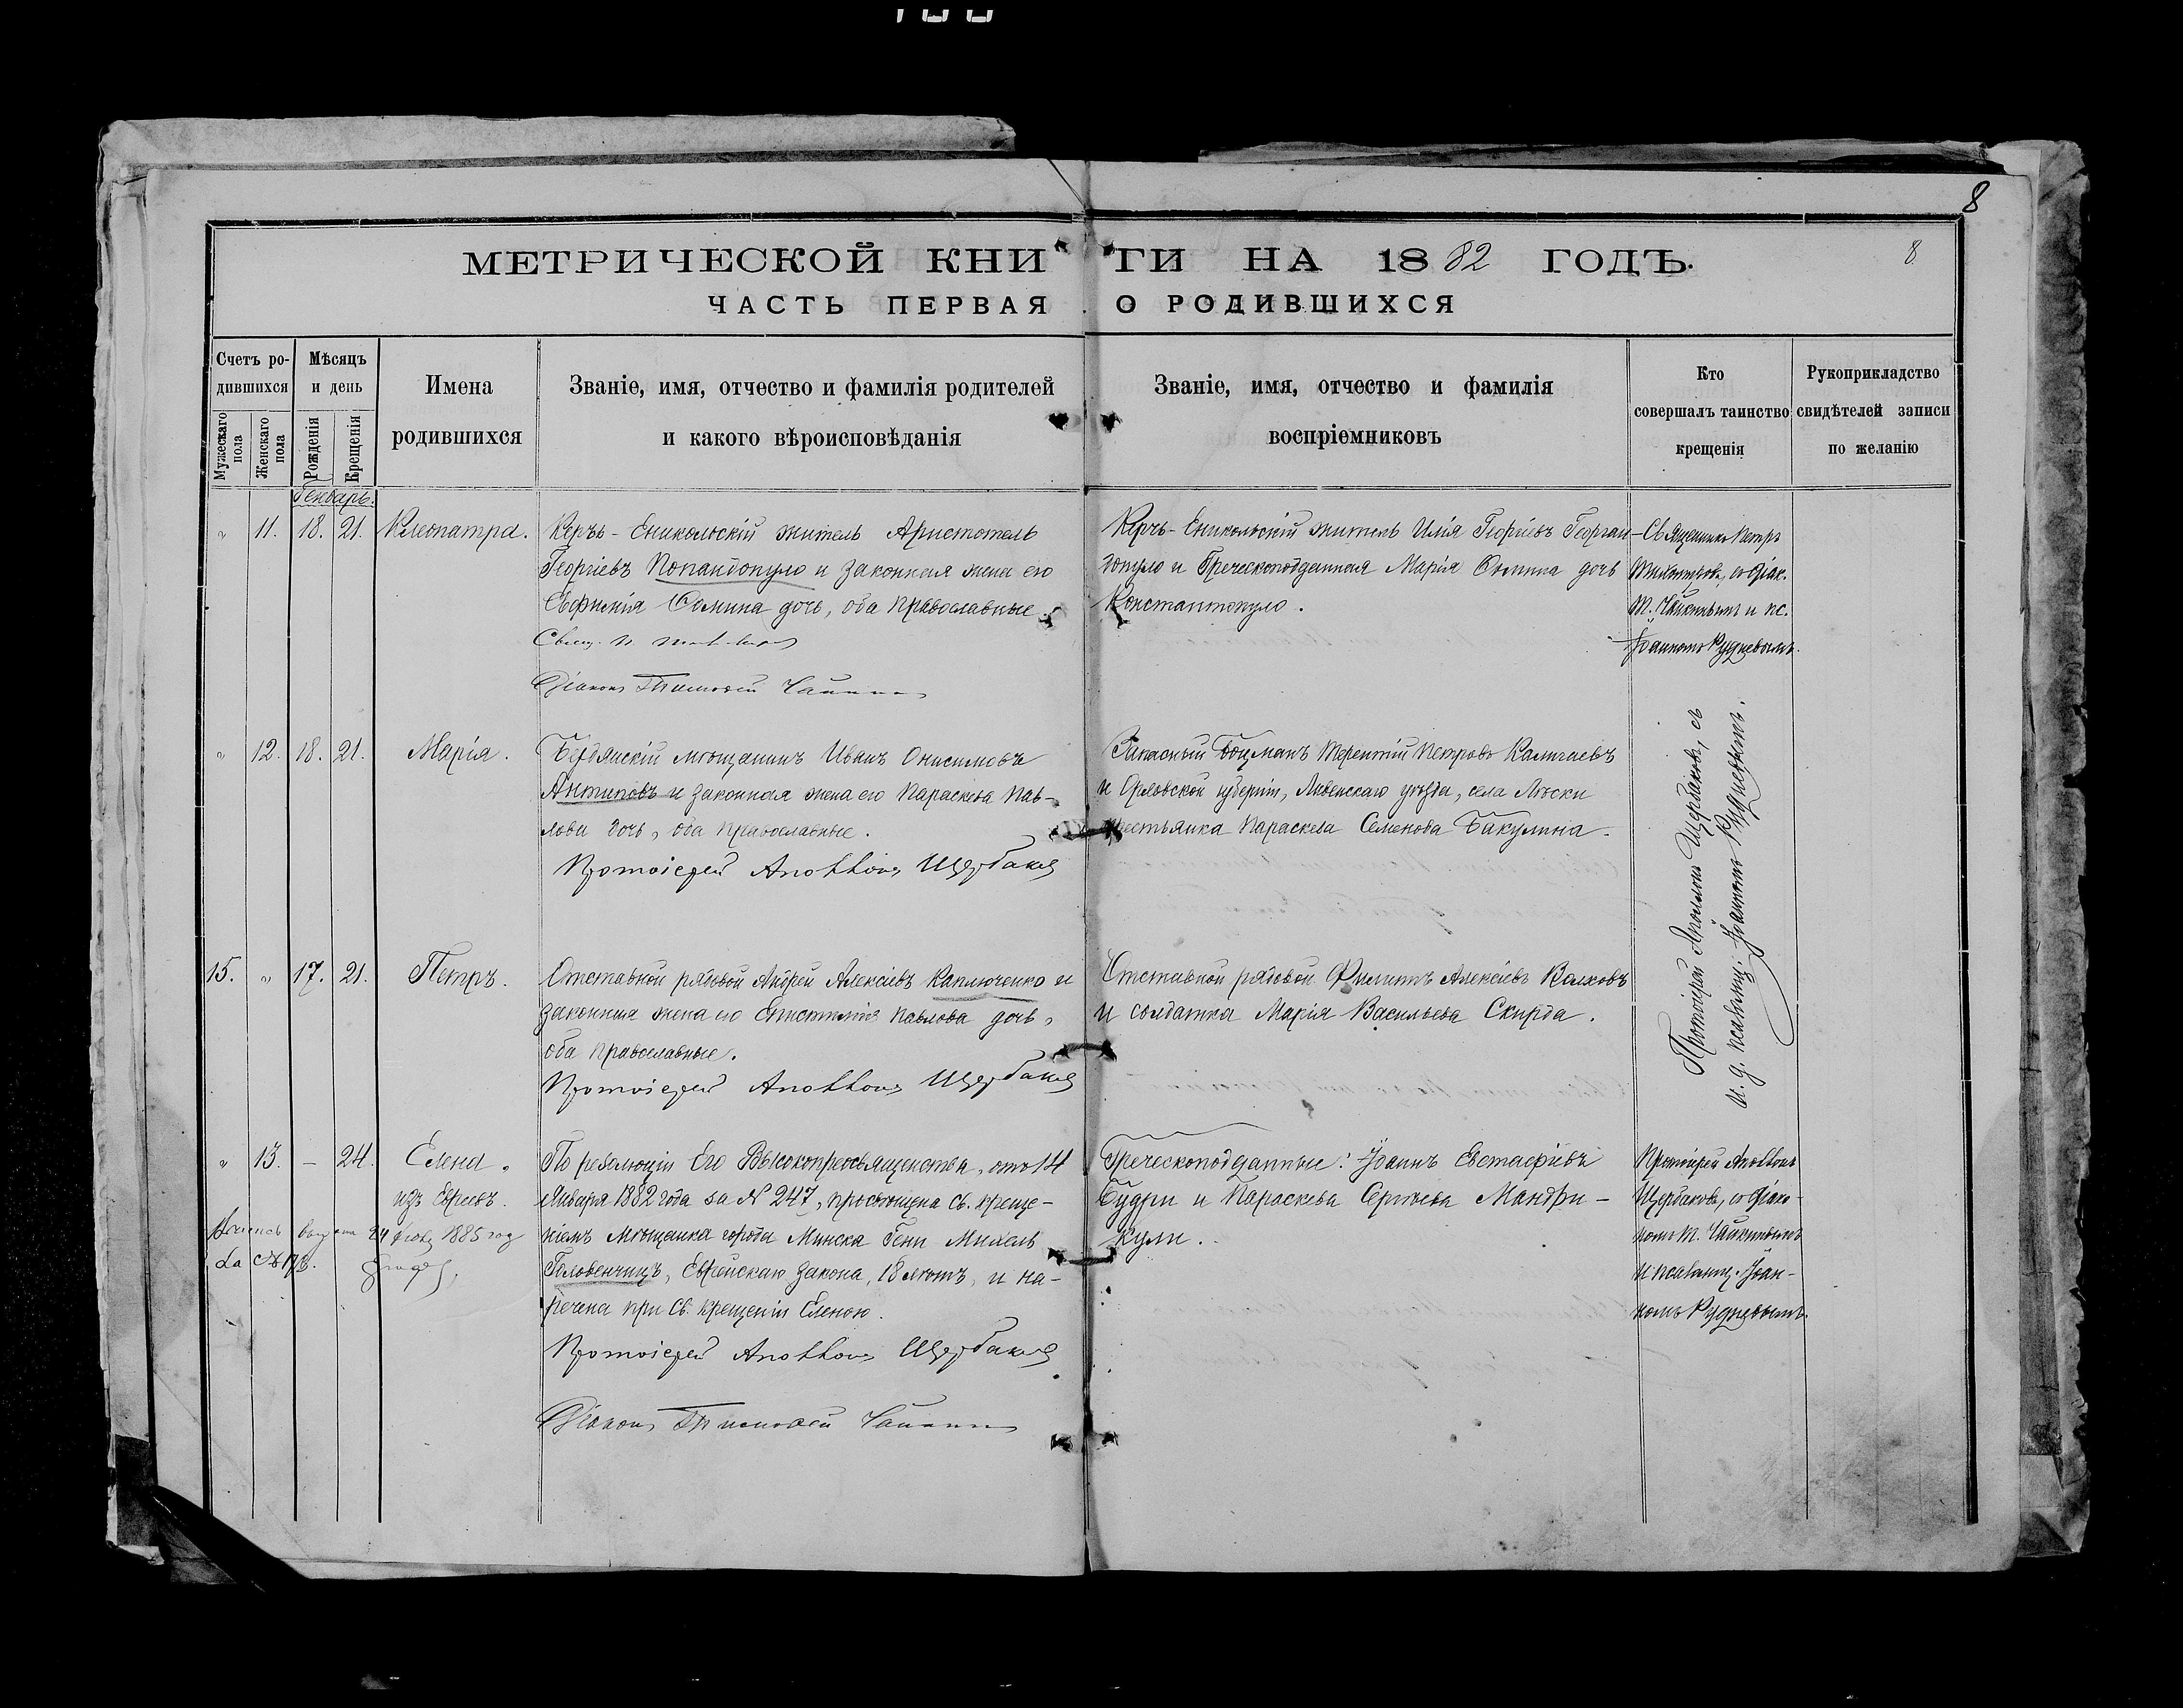 8
МЕТРИЧЕСКОЙ КНИГИ НА 1882 ГОДЪ.
8
ЧАСТЬ ПЕРВАЯ О РОДИВШИХСЯ
Счетъ родившихся
Мужескаго пола
Женскаго пола
Мѣсяцъ и день
Рожденія
Крещенія
Имена родившихся
Званіе, имя, отчество и фамилія родителей
и какого вѣроисповѣданія
Званіе, имя, отчество и фамилія
воспріемниковъ
Кто
совершалъ таинство
крещенія
Рукоприкладство
свидѣтелей записи
по желанію
Генварь.
" 11. 18. 21. Клеопатра.
Керчь-Еникольскій житель Аристотель
Георгіевъ Попандопуло и законная жена его
Евфимія Фомина дочь, оба православные.
Свящ. П.
Діаконъ Тимоѳей
Керчь-Еникольскій житель Илія Георгіевъ Георган-
допуло и Греческоподданная Марія Фомина дочь
Константопуло.
Священникъ Петръ
со діак.
Т. Чайкинымъ и пс.
Іоанномъ Рудневымъ.
" 12. 18. 21. Марія.
Бердянскій мѣщанинъ Иванъ Онисимовъ
Антиповъ и законная жена его Параскева Пав-
лова дочь, оба православные.
Протоіерей Аполлонъ Щербаковъ
Запасный Боцманъ Терентій Петровъ
и Орловской губерніи, Ливенскаго уѣзда, села
крестьянка Параскева Семенова Бакулина.
Протоіерей Аполлонъ Щербаковъ, съ
и. д. псаломщ. Іоанномъ Рудневымъ.
15. " 17. 21. Петръ.
Отставной рядовой Андрей Алексѣевъ Каплюченко и
законная жена его Епистимія Павлова дочь,
оба православные.
Протоіерей Аполлонъ Щербаковъ
Отставной рядовой Филиппъ Алексѣевъ Волховъ
и солдатка Марія Васильева Скирда.
" 13. — 24. Елена.
изъ Евреевъ.
24 1885 год
По резолюціи Его Высокопреосвященства, отъ 14
Января 1882 года за № 247, просвѣщена св. креще-
ніемъ Мѣщанка города Минска Гени Михель
Головенчицъ, Еврейскаго закона, 18 лѣтъ, и на-
речена при Св. Крещеніи Еленою.
Протоіерей Аполлонъ Щербаковъ
Діаконъ Тимоѳей
Греческоподданные: Іоаннъ Евстафіевъ
Будри и Параскева Сергѣева Мандри-
кули.
Протоіерей Аполлонъ
Щербаковъ, со діако-
номъ Т. Чайкинымъ
и псаломщ. Іоан-
номъ Рудневымъ.